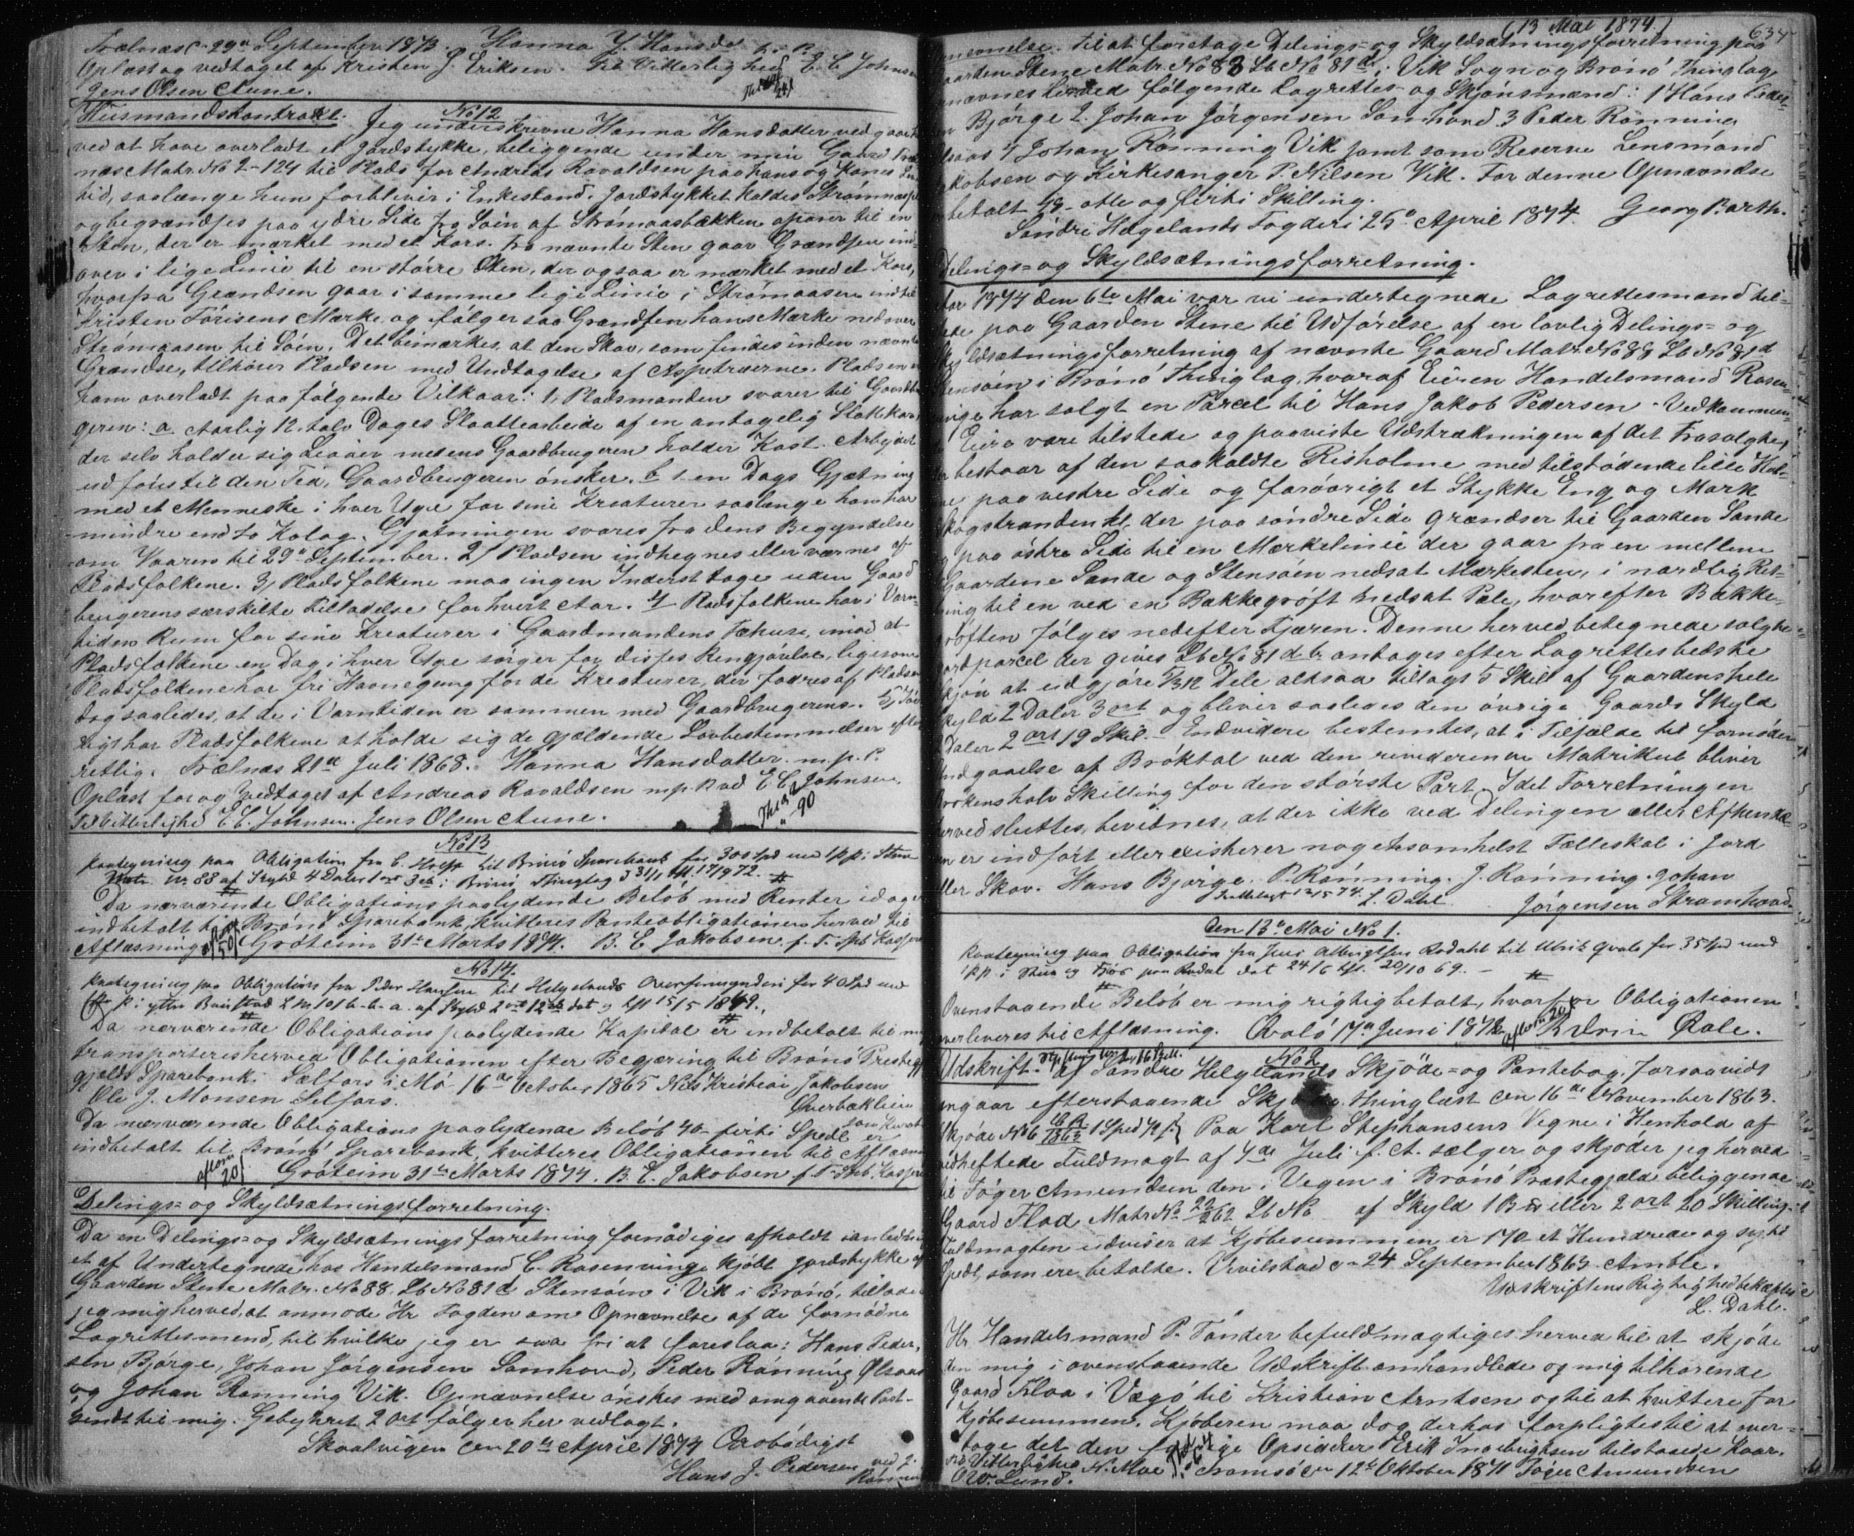 Trælnæs den 29de September 1873. Hanna J. Hansda
Oplæst og vedtaget af Kristen J Eriksen. Til Vitterlighed E. C. Johnsen
Jens Olsen Aune.
No 12
Husmandskontrakt. Jeg underskrevne Hanna Hansdatter vedgaar
ved at have overladt et Jordstykke, beliggende under min Gaard Træl
næs Matr. No 2-124 til Plads for Andreas Ravaldsen paa hans og Kones Liv
tid, saalænge hun forbliver i Enkestand. Jordstykket kaldes Strømaasen
og begrændses paa ydre Side fra Søen af Strømaasbækken opover til en
Sten, der er mærket med et Kors. Fra nævnte Sten gaar Grændsen ind-
over i lige Linie til en större Sten, der ogsaa er mærket med et Kors,
hvorfra Grændsen gaar i samme lige Linie i Strømaasen indtil
Kristen Tørisens Mærke og følger saa Grændsen hans Mærke nedover
Strømaasen til Søen. Det bemærkes, at den Skov, som findes inden nævnte
Grændse, tilhører Pladsen med Undtagelse af Aspetræerne. Pladsen er
ham overladt paa følgende Vilkaar: 1, Pladsmanden svarer til Gaardbru
geren: a Aarlig 12, tolv Dages Slaattearbeide af en antagelig Slaatkar,
der selv holder sig Ljaaer medens Gaardbrugeren holder Kost. Arbeidet
udføres til den Tid, Gaardbrugeren ønsker. b 1 en Dags Gjætning
med et Menneske i hver Uge for sine Kreaturer saalænge han har
mindre end to Kolag. Gjætningen svares fra dens Begyndelse
om Vaaren til 29de September. 2/ Pladsen indhegnes eller værnes af
Pladsfolkene. 3, Pladsfolkene maa ingen Inderst tage uden Gaard
brugerens særskilte Tilladelse for hvert Aar. 4/ Pladsfolkene har i Varm
tiden Rum for sine Kreaturer i Gaardmandens Fæhuse, imod at
Pladsfolkene en Dag i hver Uge sørger for disses Rengjørelse, ligesom
Pladsfolkene har fri Havnegang for de Kreaturer, der fødres af Pladsen
dog saaledes, at de i Varmtiden er sammen med Gaardbrugerens. 5, Iøv
rigt har Pladsfolkene at holde sig de gjældende Lovbestemmelser efter
rettlig. Trælnæs 21de Juli 1868. Hanna Hansdatter m. p. P.
Oplæst for og vedtaget af Andreas Ravaldsen m. p. P. ved E C Johnsen
Til Vitterlighed E C. Johnsen. Jens Olsen Aune.
No 13
Paategning paa Obligation fra C. Holst til Brønø Sparebank for 300 Spd med 1 pp. i Stene
Matr. Nr. 88 af Skyld 4 Daler 1 ort 3 sk i Brønø Thinglag
Da nærværende Obligations paalydende Beløb med Renter idag er
indbetalt til Brønø Sparebank, kvitteres Panteobligationen herved til
Aflæsning. Grøtheim 31te Marts 1874. B. E. Jakobsen f. T. Spb. Kasserer
No 14.
Paategning paa Obligation fra Peder Hansen til Helgelands Overformynderi for 40 Spd med
p. i ytre L No 101 b-b-a. af Skyld 2 ort 12 sk dat og 15/5 1862.
Da nærværende Obligations paalydende Kapital er indbetalt til mig
transporteres herved Obligationen efter Begjæring til Brønø Preste
gjelds Sparebank. Selfors i Mo 16de October 1865 Nils Kristian Jakobsen
Ole J. Monsen Selfors. Overbakken
Da nærværende Obligations paalydende Beløb 40 firti Spedl er
indbetalt til Brønø Sparebank, kvitteres Obligationen til Aflæsn
Grøtheim 31te Marts 1874. B. E. Jakobsen f. T. Spb. Kasserer
Delings- og Skyldsætningsforretning.
Da en Delings- og Skyldsætningsforretning fornødiges afholdt i anledning
et af Undertegnede hos Handelsmand C. Rosenvinge kjøbt Jordstykke af
Gaarden Stene Matr. No 88. Lb No 81 d Stensøen i Vik i Brønø, tillader
jeg mig herved, at anmode Hr. Fogden om Opnævnelse af de fornødne
Lagrettesmend, til hvilke jeg er saa fri at foreslaa: Hans Peder-
sen Bjørge, Johan Jørgensen Samhoved, Peder Rønning Olsaas
og Johan Rønning Vik. Opnævnelse ønskes med omgaaende Post
sendt til mig. Gebyhret 2 ort følger her vedlagt.
Skaalvigen den 20de April 1874 Ærbødigst
Hans J. Pedersen ved J.
Rønning
(13 Mai 1874.)
634
nævnelse. til at foretage Delings- og Skyldsætningsforretning paa
Gaarden Stene Matr. No 88 Lb No 81 d; Vik Sogn og Brønø Thinglag
nævnes herved følgende Lagrettes- og Skjønsmænd: 1 Hans Peder-
sen Bjørge 2. Johan Jörgensen Samhoved 3 Peder Rønning
lsaas 4 Johan Rønning Vik samt som Reserve Lensmand
Jakobsen og Kirkesanger P. Nilsen Vik. For denne Opnævnelse
betalt 48- otte og firti Skilling.
Søndre Helgelands Fogderi 25de April 1874. Georg Barth.
Delings- og Skyldsætningsforretning.
Aar 1874 den 6te Mai var vi undertegnede Lagrettesmænd til-
stede paa Gaarden Stene til Udførelse af en lovlig Delings- og
Skyldsætningsforretning af nævnte Gaard Matr. No 88 Lb No 81 d
Stensøen i Brønø Thinglag, hvoraf Eieren Handelsmand Rosen-
vinge har solgt en Parcel til Hans Jakob Pedersen. Vedkommen-
de Eiere vare tilstede og paaviste Udstrækningen af det Frasolgte,
der bestaar af den saakaldte Risholme med tilstødende lille Hol-
me paa vestre Side og forøvrigt et Stykke Eng og Mark
Skogstranden kl, der paa søndre Side grændser til Gaarden Sande
og paa østre Side til en Mærkelinie der gaar fra en mellem
Gaardene Sande og Stensøen nedsat Mærkesten, i nordlig Ret-
ning til en ved en Bækkegrøft nedsat Pæle, hvorefter Bække-
grøften følges nedefter Fjæren. Denne herved betegnede solgte
Jordparcel der gives Lb No 81 d b antages efter Lagrettes bedste
Skjøn at udgjøre 5/312 Dele altsaa tillagt 5 Skill af Gaardens hele
Skyld 2 Daler 3 ort og bliver saaledes den øvrige Gaards Skyld
2 Daler 2 ort 19 Skil. Endvidere bestemtes, at i Tilfælde til fornøden
Undgaaelse af Brøktal ved den reviderende Matrikul bliver
Brøkens halv Skilling for den største Part. Idet Forretningen
herved sluttes, bevidnes, at der ikke ved Delingen eller Afhændel-
sen er indført eller existerer nogensomhelst Fælleskab i Jord
eller Skov. Hans Bjørge. P. Rønning. J. Rønning. Johan
Jørgensen Stramhoved.
L. Dahl.
Den 13de Mai No 1.
Paategning paa Obligation fra Jens Albrigtsen Aadahl til Ulrik Qvale for 35 Spd med
1 pp. i Huus og Fjøs paa Aadal dat 24/6 tgl. 20/10 69. —
Ovenstaaende Beløb er mig rigtig betalt, hvorfor Obligationen
overleveres til Aflæsning. Qvalø 17de Juni 1872 Edvin Qvale.
No 2.
Udskrift af Søndre Helgelands Skjøde- og Pantebog, forsaavidt
angaar efterstaaende Skjøde, thinglæst den 16de November 1863.
Skjøde No 6 Paa Karl Stephansens Vegne i Henhold af
vedheftede Fuldmagt af 4de Juli f. A. sælger og skjøder jeg herved
til Tøger Amundsen den i Vegen i Brønø Præstegjæld beliggende
Gaard Flad Matr No 22/262 Lb No af Skyld 1 B. eller 2 ort 20 Skilling.
Fuldmagten udviser at Kjøbesummen er 170 et Hundrede og sytti
Spdl, som ere betalte. Vivilstad den 24 September 1863. Amble.
Udskriftens Rigtighed bekræftes
L. Dahl.
Hr. Handelsmand P. Tønder befuldmægtiges herved til at skjøde
den mig i ovenstaaende Udskrift omhandlede og mig tilhørende
Gaard Floa i Vægø til Kristian Arntsen og til at kvittere for
Kjøbesummen. Kjøberen maa dog derhos forpligtes til at over-
tage det den forrige Opsidder Erik Ingebrigtsen tilstaaede Kaar.
Til Vitterlighed N. Moe Tromsø den 12te Oktober 1871 Tøger Amundsen
O. W. Lund.